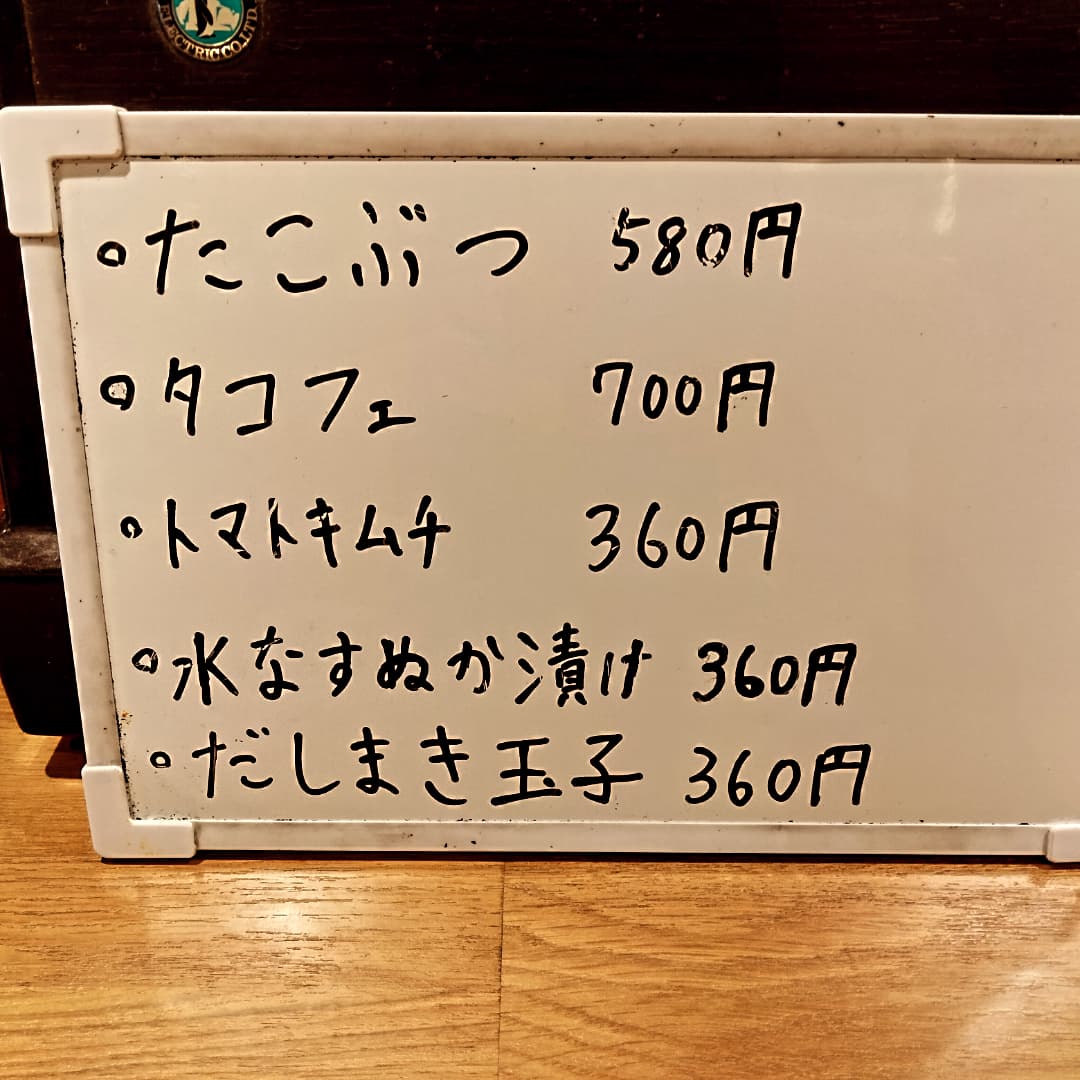 ELECTRIC CO.,LTD.
。たこぶつ 580円
。タコフェ 700円
。トマトキムチ 360円
。水なすぬか漬け 360円
。だしまき玉子 360円